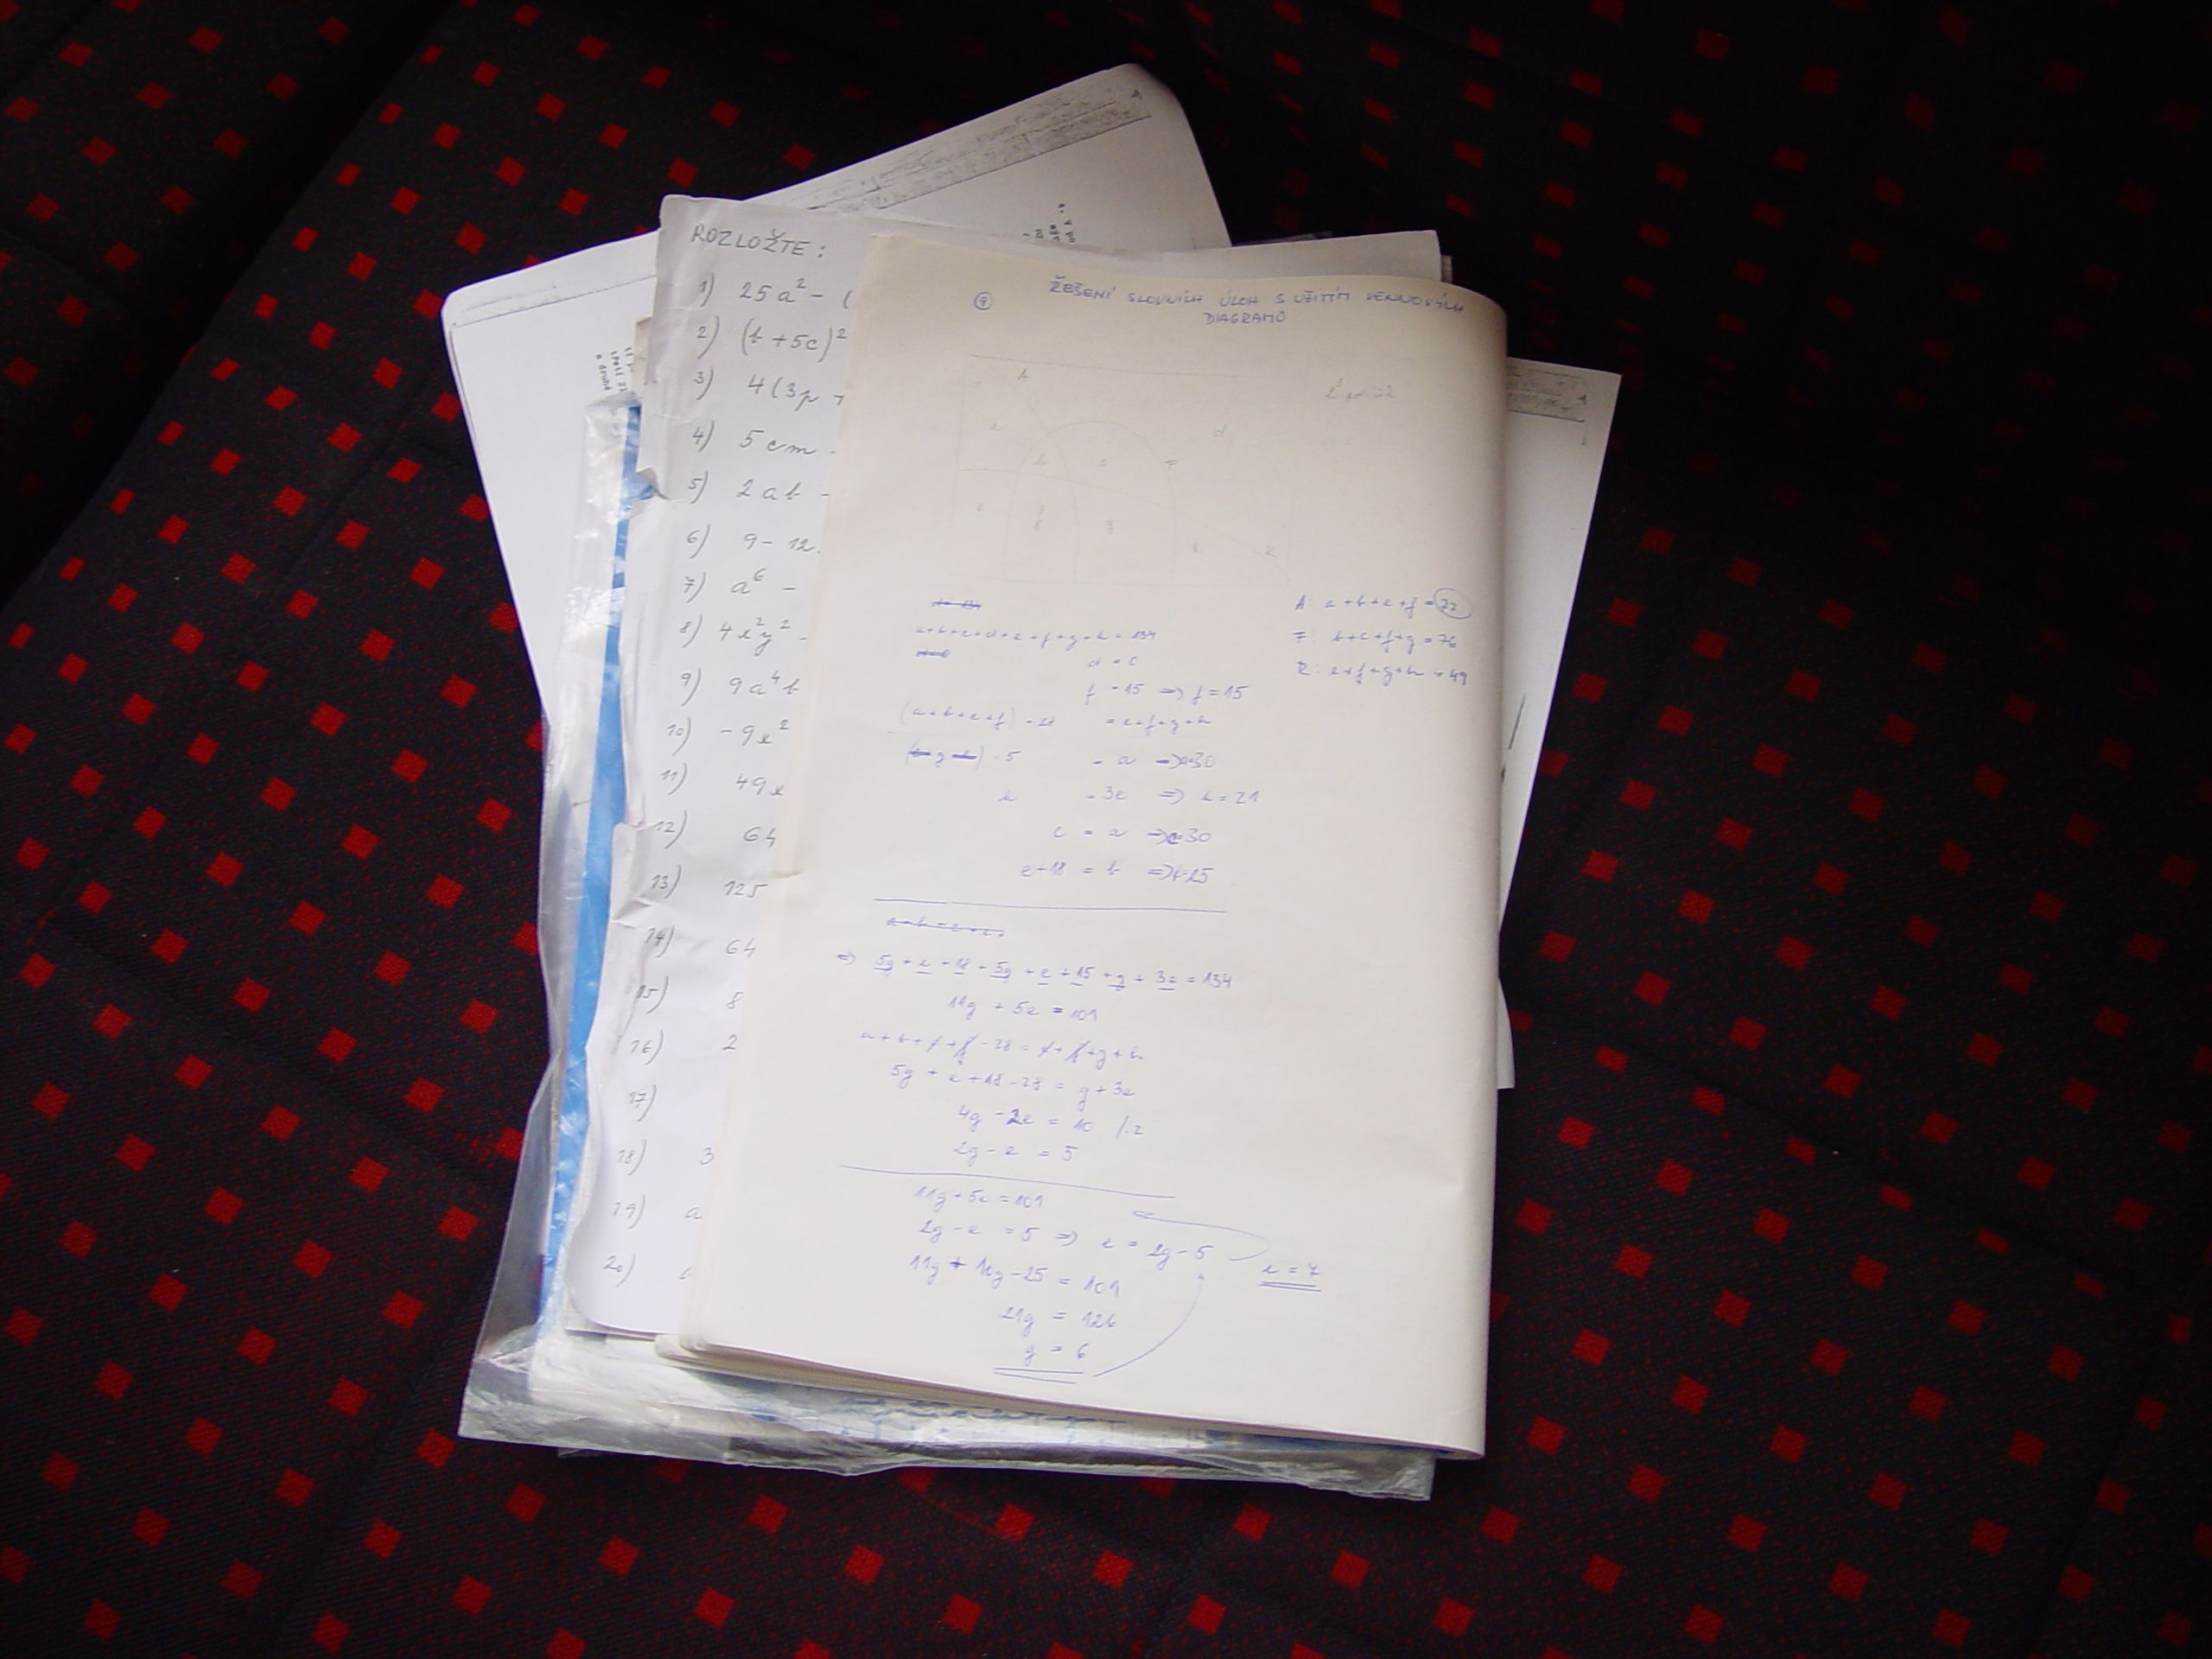 ROZLOŽTE:
1) 25a² - (
2) (b+5c)²
3) 4(3p +
4) 5cm -
5) 2ab -
6) 9 - 12
7) a⁶ -
8) 4x²y² -
9) 9a⁴b
10) -9x²
11) 49x
12) 64
13) 125
14) 64
15) 8
16) 2
17)
18) 3
19) a
20)
9
ŘEŠENÍ SLOVNÍCH ÚLOH S UŽITÍM VENNOVÝCH
DIAGRAMŮ
A
a d
b c F
e f g
h R
A: a+b+e+f = 77
F: b+c+f+g = 76
R: e+f+g+h = 49
a+b+c+d+e+f+g+h = 134
d = 0
f = 15 => f = 15
(a+b+e+f) - 28 = e+f+g+h
g · 5 = a => a=30
h = 3e => h = 21
c = a => c=30
e+18 = b => b=25
=> 5g + e + 18 + 5g + e + 15 + g + 3e = 134
11g + 5e = 101
a + b + e + f - 28 = e + f + g + h
5g + e + 18 - 28 = g + 3e
4g - 2e = 10 /:2
2g - e = 5
11g + 5e = 101
2g - e = 5 => e = 2g - 5
11g + 10g - 25 = 101
e = 7
21g = 126
g = 6